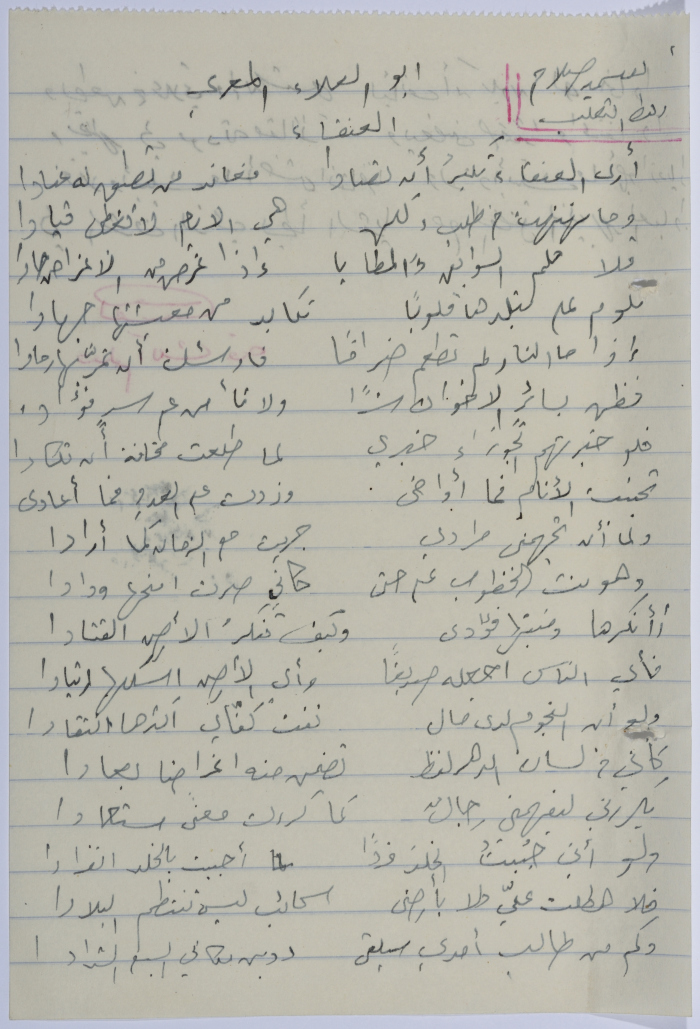 ابو العلاء المعري
العنقاء
أرى العنقاء تكبر أن تصادا فعاند من تطيق له عنادا
وما نهنهت في طلب ولكن هي الايام لا تعطي قيادا
فلا تلم السوابق والمطايا إذا غرض من الاغراض حادا
تلوم على تبلدها قلوبًا تكابد من معيشتها جهادا
إذا ما النار لم تطعم ضرامًا فاوشك أن تمر بها رمادا
فظن بسائر الاخوان شرًا ولا تأمن على سر فؤادا
فلو خبرتهم الجوزاء خبري لما طلعت مخافة أن تكادا
تجنبت الأنام فما أواخي وزدت عن العدو فما أعادى
ولما أن تجهمني مرادي جريت مع الزمان كما أرادا
وهونت الخطوب علي حتى كأني صرت امنحها ودادا
أأنكرها ومنبتها فؤادى وكيف تنكر الأرض القتادا
فأي الناس اجعله صديقًا وأي الأرض اسلكها ارتيادا
ولو أن النجوم لدي مال نفت كفاي اكثرها انتقادا
كأني في لسان الدهر لفظ تضمن منه اغراضا بعادا
يكررني ليفهمني رجال كما كررت معنًى مستعادا
ولو أني حُبيتُ الخلد فردًا لما أحببت بالخلد انفرادا
فلا هطلت عليّ ولا بأرضي سحائب ليس تنتظم البلادا
وكم من طالب أمدي سيلقى دوين مكاني السبع الشدادا